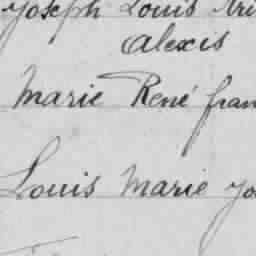 Joseph Louis
Alexis
Marie René fran
Louis Marie Jo